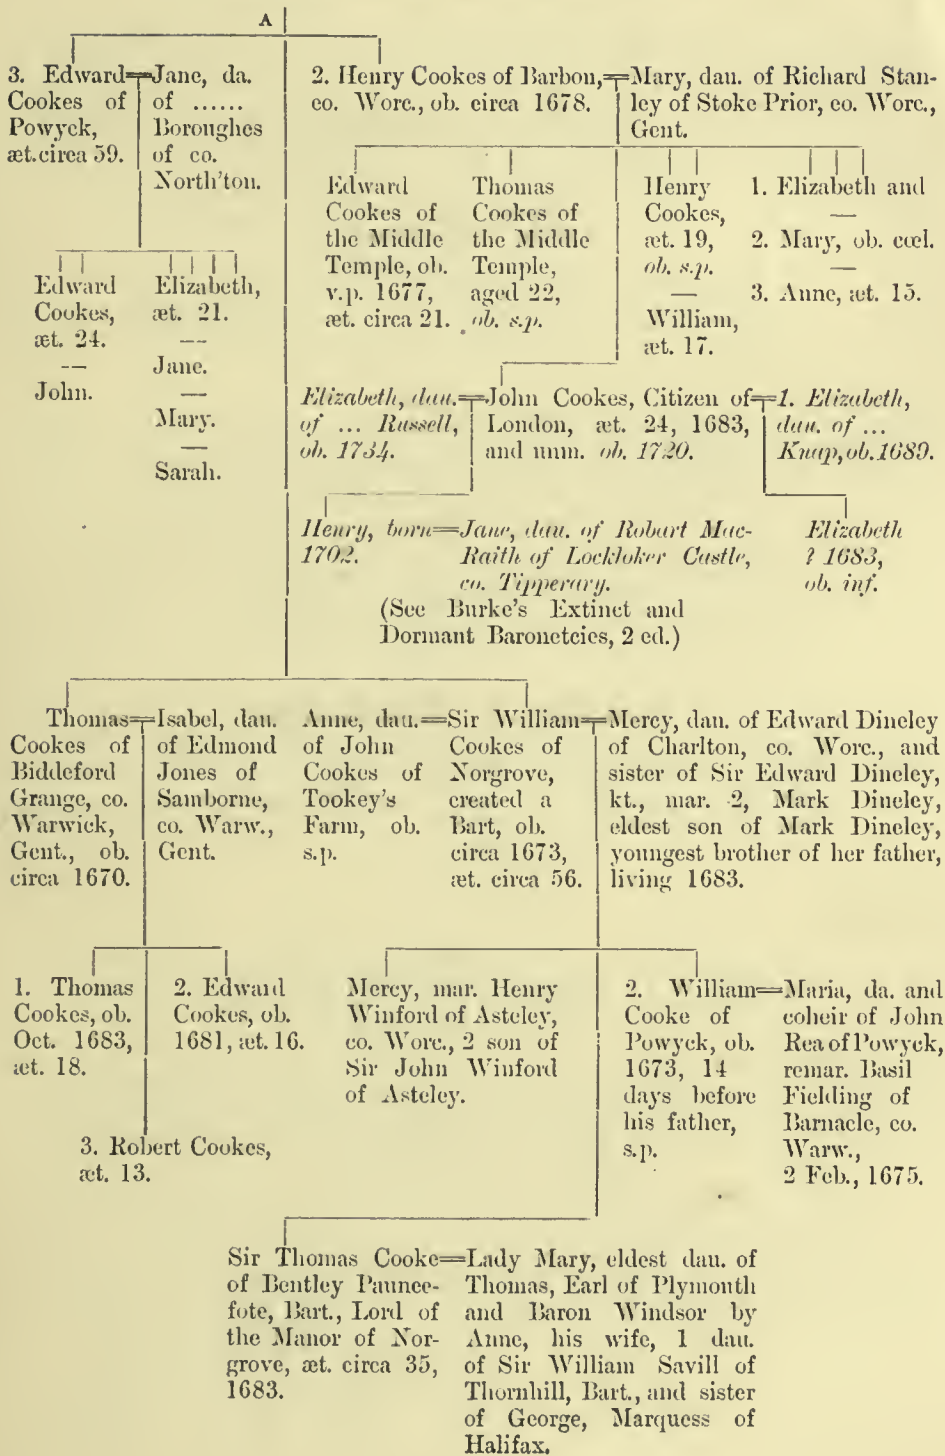 A
3. Edward
Cookes of
Powyck,
æt. circa 59.
Jane, da.
of ......
Boroughes
of co.
North'ton.
2. Henry Cookes of Barbon,
co. Worc., ob. circa 1678.
Mary, dau. of Richard Stan-
ley of Stoke Prior, co. Worc.,
Gent.
Edward
Cookes,
æt. 24.
—
John.
Elizabeth,
æt. 21.
—
Jane.
—
Mary.
—
Sarah.
Edward
Cookes of
the Middle
Temple, ob.
v.p. 1677,
æt. circa 21.
Thomas
Cookes of
the Middle
Temple,
aged 22,
ob. s.p.
Henry
Cookes,
æt. 19,
ob. s.p.
—
William,
æt. 17.
1. Elizabeth and
—
2. Mary, ob. cœl.
—
3. Anne, æt. 15.
Elizabeth, dau.
of ... Russell,
ob. 1734.
John Cookes, Citizen of
London, æt. 24, 1683,
and unm. ob. 1720.
1. Elizabeth,
dau. of ...
Knap, ob. 1689.
Henry, born
1702.
Jane, dau. of Robart Mac-
Raith of Lockloker Castle,
co. Tipperary.
Elizabeth
? 1683,
ob. inf.
(See Burke's Extinct and
Dormant Baronetcies, 2 ed.)
Thomas
Cookes of
Biddeford
Grange, co.
Warwick,
Gent., ob.
circa 1670.
Isabel, dau.
of Edmond
Jones of
Samborne,
co. Warw.,
Gent.
Anne, dau.
of John
Cookes of
Tookey's
Farm, ob.
s.p.
Sir William
Cookes of
Norgrove,
created a
Bart, ob.
circa 1673,
æt. circa 56.
Mercy, dau. of Edward Dineley
of Charlton, co. Worc., and
sister of Sir Edward Dineley,
kt., mar. 2, Mark Dineley,
eldest son of Mark Dineley,
youngest brother of her father,
living 1683.
1. Thomas
Cookes, ob.
Oct. 1683,
æt. 18.
2. Edward
Cookes, ob.
1681, æt. 16.
3. Robert Cookes,
æt. 13.
Mercy, mar. Henry
Winford of Asteley,
co. Worc., 2 son of
Sir John Winford
of Asteley.
2. William
Cooke of
Powyck, ob.
1673, 14
days before
his father,
s.p.
Maria, da. and
coheir of John
Rea of Powyck,
remar. Basil
Fielding of
Barnacle, co.
Warw.,
2 Feb., 1675.
Sir Thomas Cooke
of Bentley Paunce-
fote, Bart., Lord of
the Manor of Nor-
grove, æt. circa 35,
1683.
Lady Mary, eldest dau. of
Thomas, Earl of Plymonth
and Baron Windsor by
Anne, his wife, 1 dau.
of Sir William Savill of
Thornhill, Bart., and sister
of George, Marquess of
Halifax.